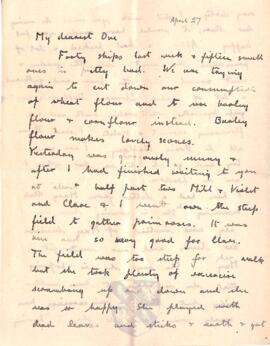 April 27
My dearest One
Forty ships last week & fifteen small
ones is pretty bad. We are trying
again to cut down our consumption
of wheat flour and to use barley
flour & cornflour instead. Barley
flour makes lovely scones.
Yesterday was gloriously sunny &
after I had finished writing to you
at about half past two Mill & Violet
and Clare & I went over the steep
field to gather primroses. It was
so very good for Clare.
The field was too steep for her walk
but she took plenty of exercise
scrambling up and down and she
was so happy. She played with
dead leaves and sticks & earth & got